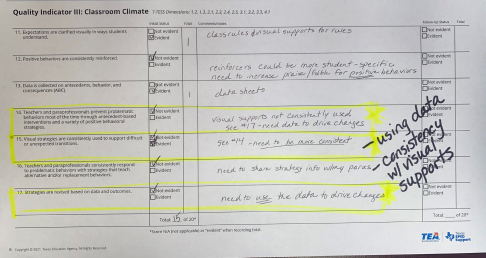 Quality Indicator III: Classroom Climate
Initial Status Total Comments/Notes Follow-Up Status Total
11. Expectations are clarified visually in ways students understand.
Not evident
Evident
1
class rules & visual supports for rules
Not evident
Evident
12. Positive behaviors are consistently reinforced.
Not evident
Evident
reinforcers could be more student-specific
need to increase praise/ for positive behaviors
Not evident
Evident
13. Data is collected on antecedents, behavior, and consequences (ABC)
Not evident
Evident
1
data sheets
Not evident
Evident
14. Teachers and paraprofessionals prevent problematic behaviors most of the time through antecedent-based interventions and a variety of positive behavioral strategies.
Not evident
Evident
visual supports not consistently used
see #17 - need data to drive changes
15. Visual strategies are consistently used to support difficult or unexpected transitions.
Not evident
Evident
see #14 - need to be more consistent
16. Teachers and paraprofessionals consistently respond to problematic behaviors with strategies that teach alternative and/or replacement behaviors.
Not evident
Evident
need to share strategy info w/my paras
17. Strategies are revised based on data and outcomes.
Not evident
Evident
need to use the data to drive changes
Not evident
Evident
- using data
- consistency
w/ visual
supports
Total 15 of 20*
Total of 20*
*Score N/A (not applicable) as "evident" when recording total.
TEA
Texas SPED Support